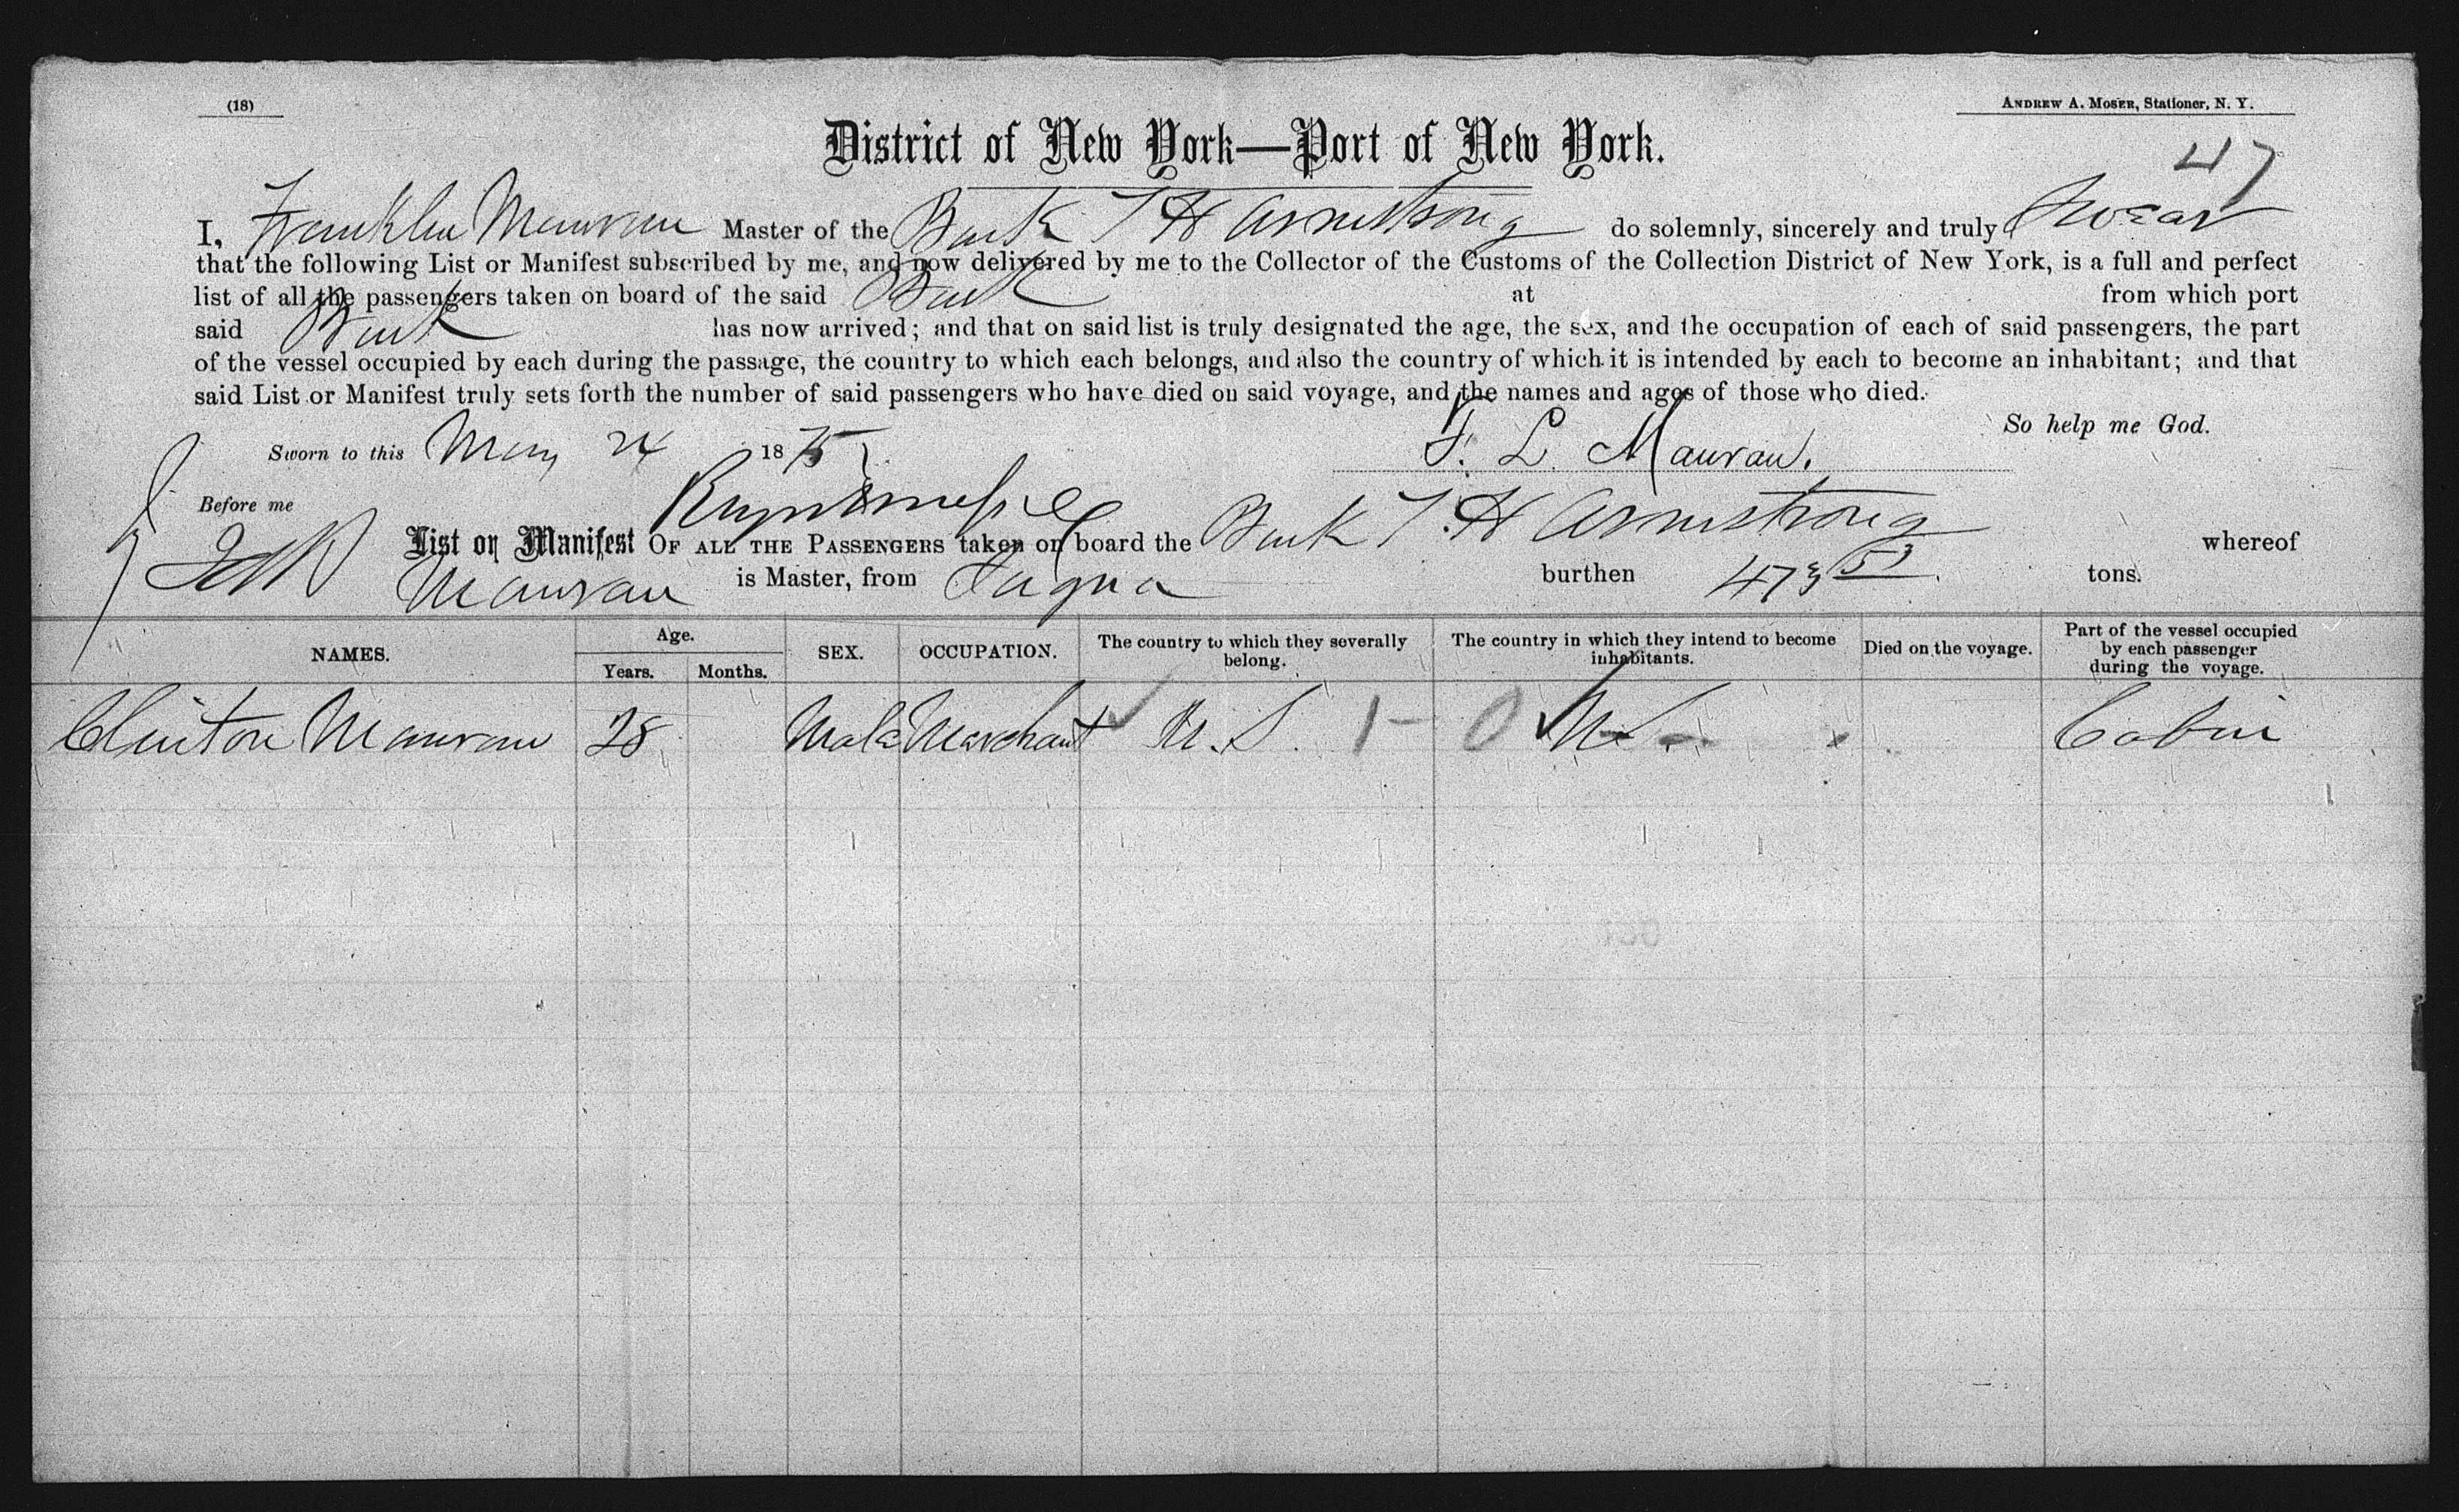 (18)
ANDREW A. MOSER, Stationer, N. Y.
District of New York—Port of New York.
47
I, Franklin Mauran Master of the Bark T H Armstrong do solemnly, sincerely and truly Swear
that the following List or Manifest subscribed by me, and now delivered by me to the Collector of the Customs of the Collection District of New York, is a full and perfect
list of all the passengers taken on board of the said Bark at from which port
said Bark has now arrived; and that on said list is truly designated the age, the sex, and the occupation of each of said passengers, the part
of the vessel occupied by each during the passage, the country to which each belongs, and also the country of which it is intended by each to become an inhabitant; and that
said List or Manifest truly sets forth the number of said passengers who have died on said voyage, and the names and ages of those who died.
So help me God.
Sworn to this May 24 1875
F. L. Mauran.
Before me
List or Manifest OF ALL THE PASSENGERS taken on board the Bark T. H Armstrong whereof
Mauran is Master, from Sagua burthen 473 53 tons.
NAMES. Age. Years. Months. SEX. OCCUPATION. The country to which they severally belong. The country in which they intend to become inhabitants. Died on the voyage. Part of the vessel occupied by each passenger during the voyage.
Clinton Mauran 28 Male Merchant U. S. 1 - 0 U.S. Cabin